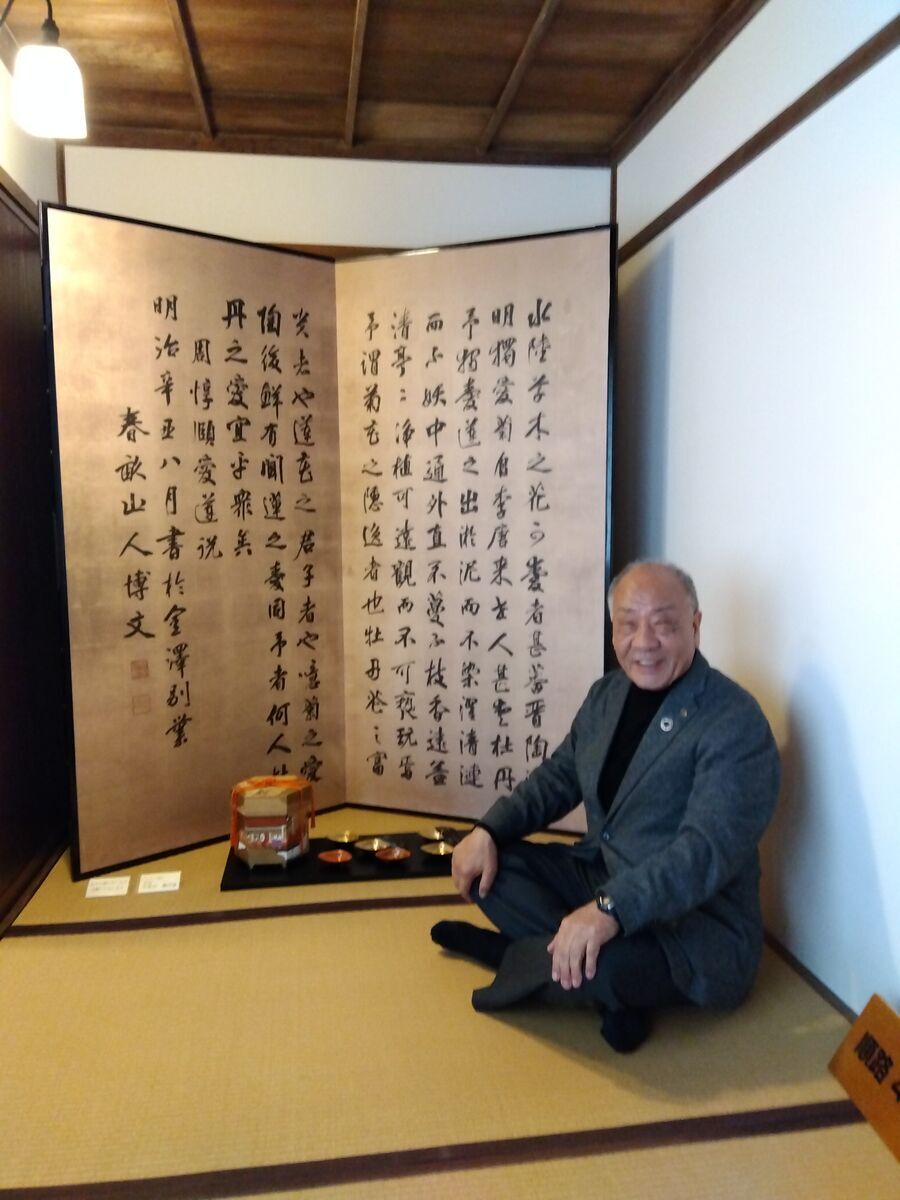 水陸草木之花可愛者甚蕃晋陶
明獨愛菊自李唐来世人甚愛牡丹
予獨愛蓮之出淤泥而不染濯清漣
而不妖中通外直不蔓不枝香遠益
清亭〻浄植可遠觀而不可褻玩焉
予謂菊花之隠逸者也牡丹花之富
貴者也蓮花之君子者也噫菊之愛
陶後鮮有聞蓮之愛同予者何人牡
丹之愛宜乎衆矣
周惇頤愛蓮説
明治辛丑八月書於金澤別業
春畝山人博文
順路